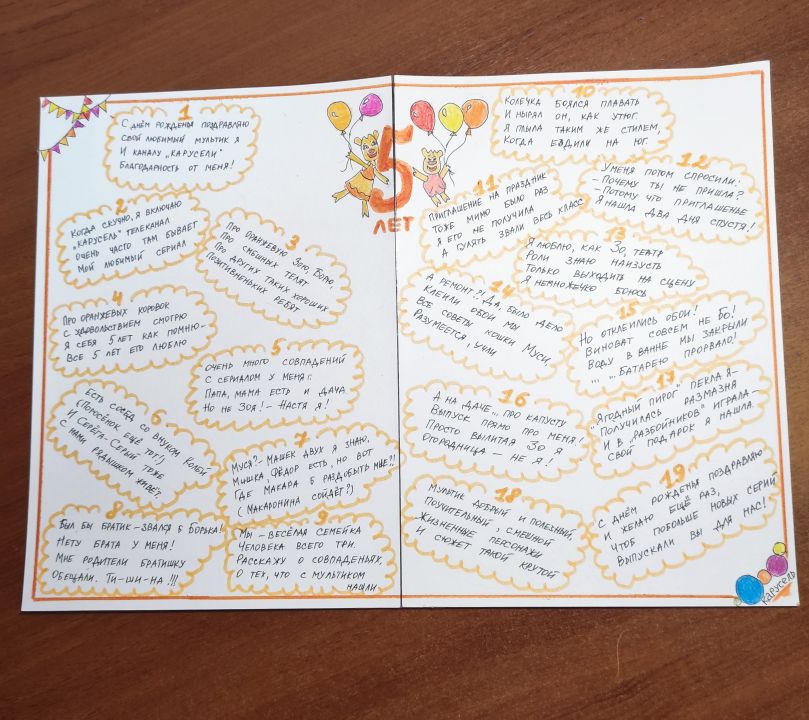 1
С днём рожденья поздравляю
свой любимый мультик я
И каналу „Карусели"
Благодарность от меня!
2
Когда скучно, я включаю
„Карусель" телеканал
Очень часто там бывает
Мой любимый сериал
3
Про оранжевую Зою, Борю,
Про смешных телят
Про других таких хороших
Позитивненьких ребят
4
Про оранжевых коровок
С удовольствием смотрю
Я себя 5 лет как помню –
Все 5 лет его люблю
5
Очень много совпадений
С сериалом у меня:
Папа, мама есть и дача
Но не Зоя! – Настя я!
6
Есть сосед со внуком Колей
(Поросёнок ещё тот!)
И Серёга-Серый тоже
С нами рядышком живёт.
7
Муся? – Машек двух я знаю,
Мишка, Фёдор есть, но вот
Где Макара б раздобыть мне?!
(Макаронина сойдёт?)
8
Был бы братик – звался б Борька!
Нету брата у меня!
Мне родители братишку
Обещали. Ти-ши-на!!!
9
Мы – весёлая семейка
Человека всего три.
Расскажу о совпаденьях,
О тех, что с мультиком
нашли
5
ЛЕТ
10
Колечка боялся плавать
И нырял он, как утюг.
Я плыла таким же стилем,
Когда ездили на юг.
11
Приглашение на праздник
Тоже мимо было раз
Я его не получила
А гулять звали весь класс
12
Уменя потом спросили:
– Почему ты не пришла?
– Потому что приглашенье
Я нашла два дня спустя!
13
Я люблю, как Зо, театр
Роли знаю наизусть
Только выходить на сцену
Я немножечко боюсь
14
А ремонт?! Да, было дело
Клеили обои мы
Все советы кошки Муси,
Разумеется, учли
15
Но отклеились обои!
Виноват совсем не Бо!
Воду в ванне мы закрыли
... ... Батарею прорвало!
16
А на даче... про капусту
Выпуск прямо про меня!
Просто вылитая Зо я
Огородница – не я!
17
„Ягодный пирог" пекла я –
Получилась размазня
И в „Разбойников" играла –
Свой подарок я нашла.
18
Мультик добрый и полезный,
Поучительный, смешной
Жизненные персонажи
И сюжет такой крутой
19
С днём рожденья поздравляю
И желаю ещё раз,
Чтоб побольше новых серий
Выпускали вы для нас!
Карусель